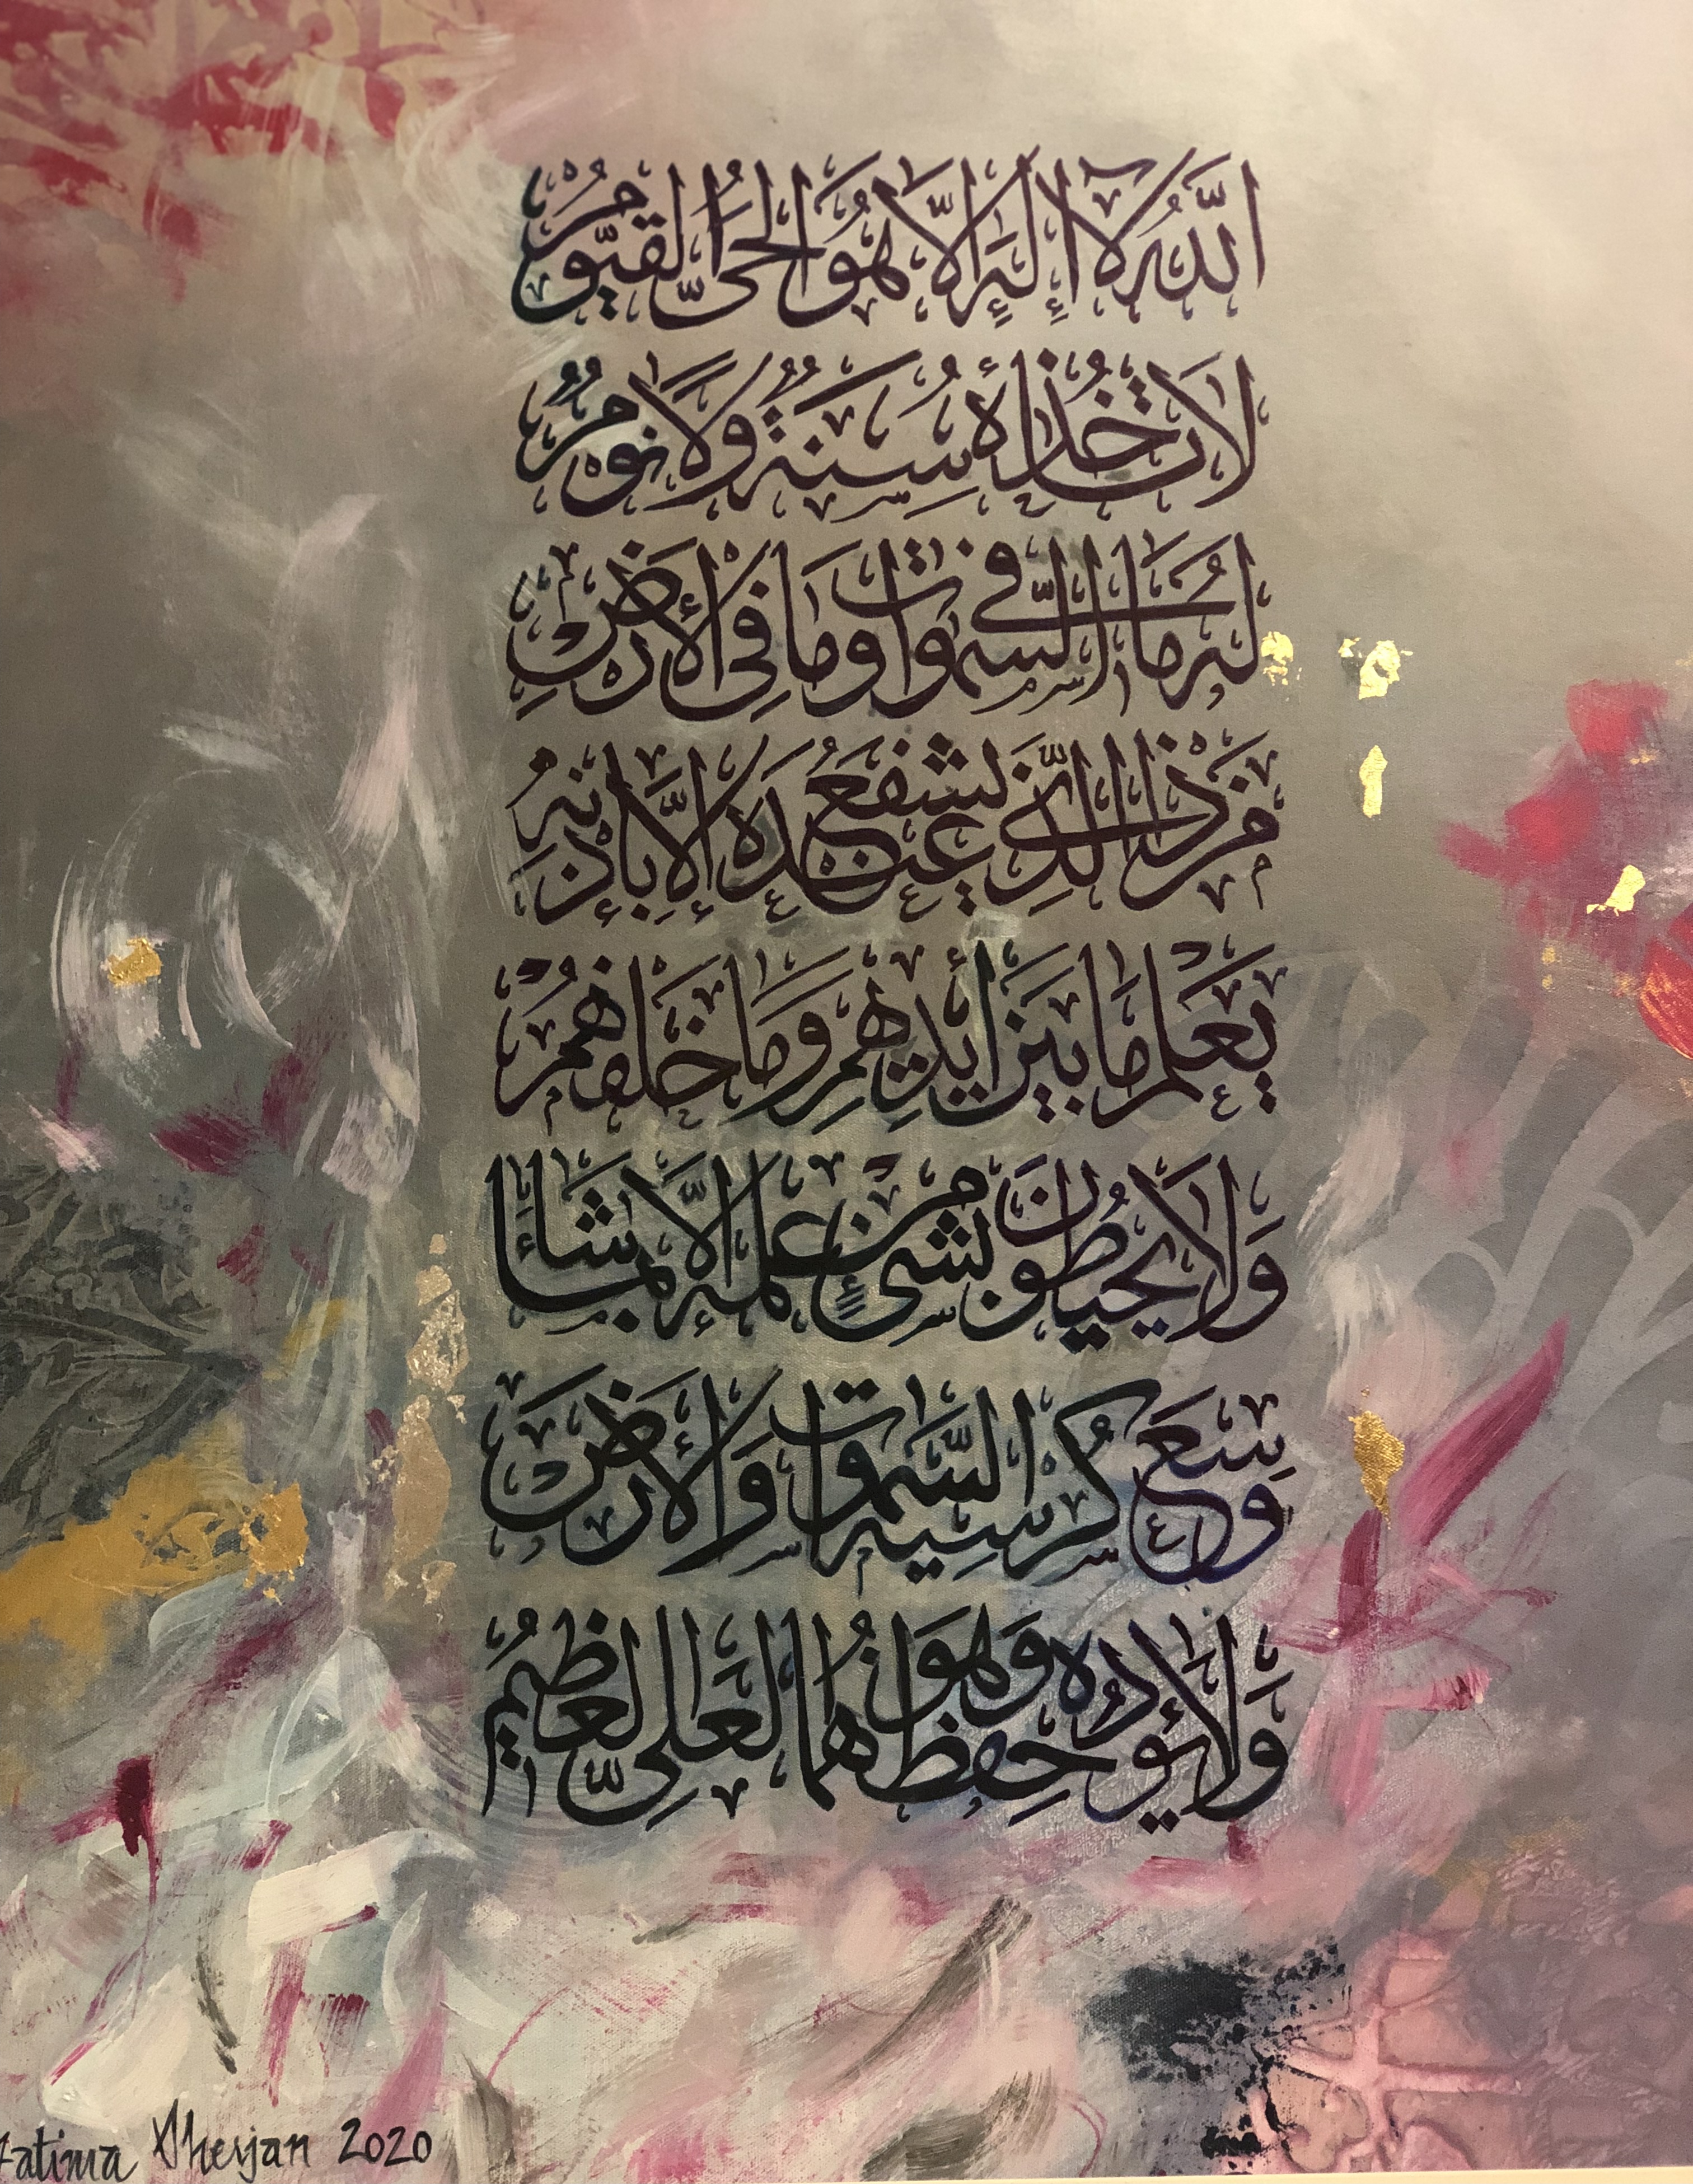 اللَّهُ لَا إِلَٰهَ إِلَّا هُوَ الْحَيُّ الْقَيُّومُ
لَا تَأْخُذُهُ سِنَةٌ وَلَا نَوْمٌ
لَهُ مَا فِي السَّمَٰوَاتِ وَمَا فِي الْأَرْضِ
مَنْ ذَا الَّذِي يَشْفَعُ عِنْدَهُ إِلَّا بِإِذْنِهِ
يَعْلَمُ مَا بَيْنَ أَيْدِيهِمْ وَمَا خَلْفَهُمْ
وَلَا يُحِيطُونَ بِشَيْءٍ مِنْ عِلْمِهِ إِلَّا بِمَا شَاءَ
وَسِعَ كُرْسِيُّهُ السَّمَٰوَاتِ وَالْأَرْضَ
وَلَا يَئُودُهُ حِفْظُهُمَا وَهُوَ الْعَلِيُّ الْعَظِيمُ
Fatima Sherjan 2020